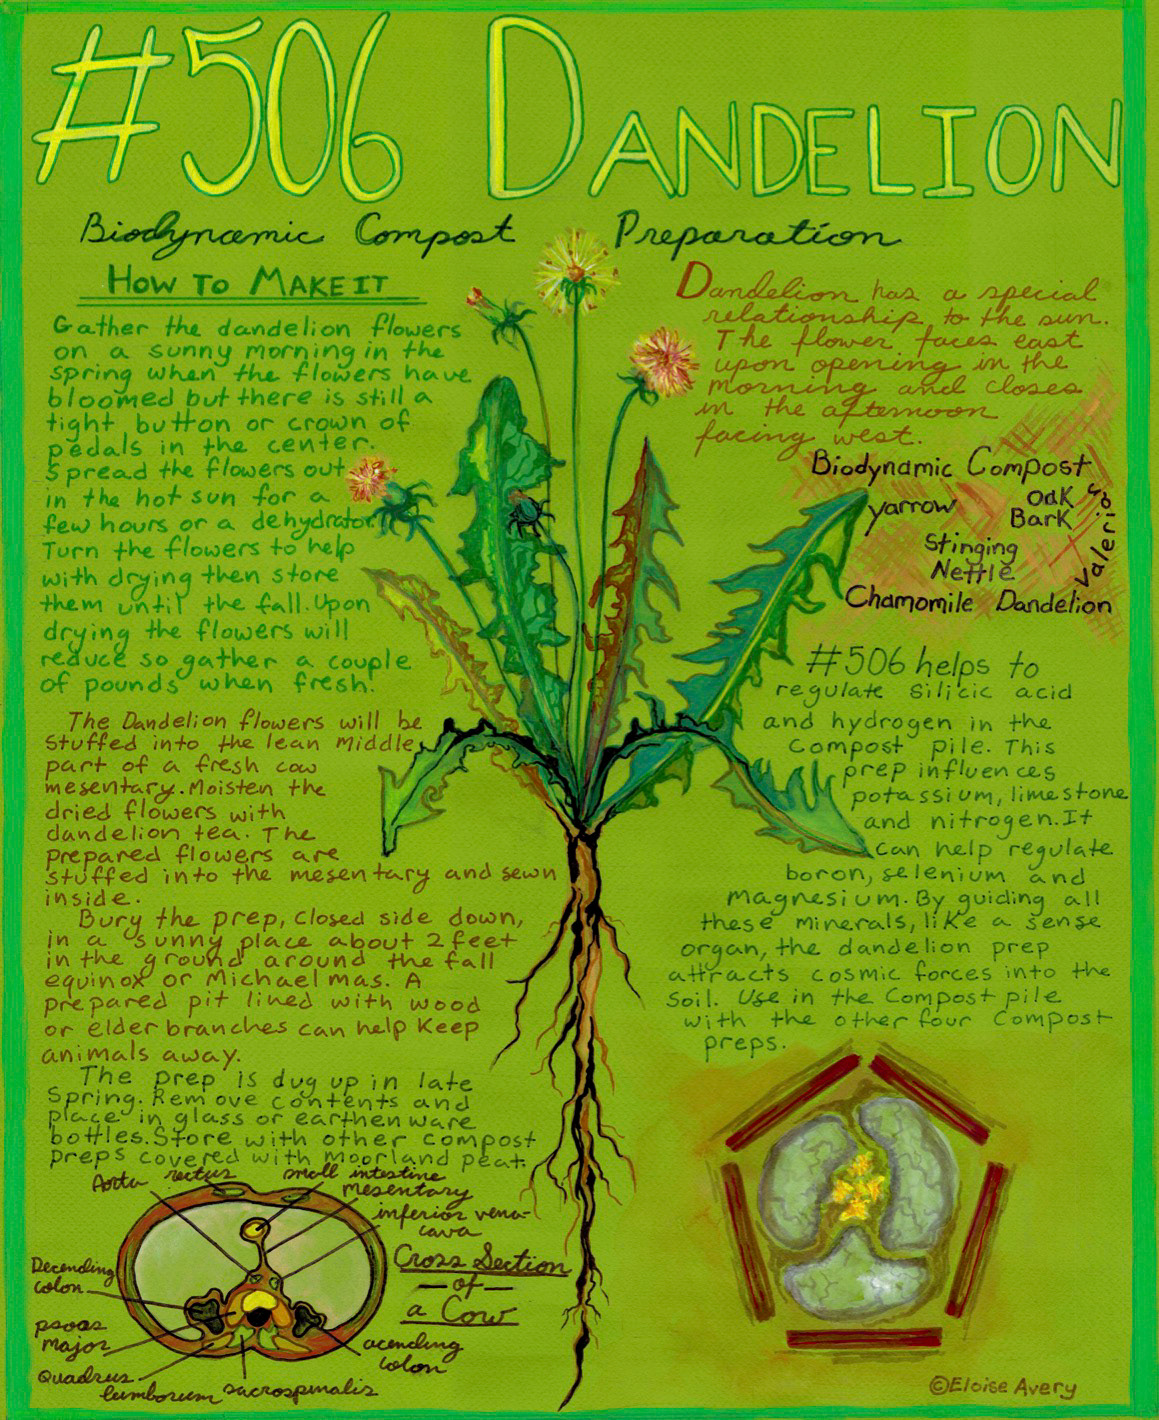 #506 DANDELION
Biodynamic Compost Preparation
HOW TO MAKE IT
Gather the dandelion flowers
on a sunny morning in the
spring when the flowers have
bloomed but there is still a
tight button or crown of
pedals in the center.
Spread the flowers out
in the hot sun for a
few hours or a dehydrator.
Turn the flowers to help
with drying then store
them until the fall. Upon
drying the flowers will
reduce so gather a couple
of pounds when fresh.
The Dandelion flowers will be
stuffed into the lean middle
part of a fresh cow
mesentary. Moisten the
dried flowers with
dandelion tea. The
prepared flowers are
stuffed into the mesentary and sewn
inside.
Bury the prep, closed side down,
in a sunny place about 2 feet
in the ground around the fall
equinox or Michael mas. A
prepared pit lined with wood
or elder branches can help keep
animals away.
The prep is dug up in late
Spring. Remove contents and
place in glass or earthenware
bottles. Store with other compost
preps covered with moorland peat.
Dandelion has a special
relationship to the sun.
The flower faces east
upon opening in the
morning and closes
in the afternoon
facing west.
Biodynamic Compost
yarrow Oak
Bark
Stinging
Nettle
Valerian
Chamomile Dandelion
#506 helps to
regulate silicic acid
and hydrogen in the
compost pile. This
prep influences
potassium, limestone
and nitrogen. It
can help regulate
boron, selenium and
magnesium. By guiding all
these minerals, like a sense
organ, the dandelion prep
attracts cosmic forces into the
soil. Use in the compost pile
with the other four compost
preps.
Aorta rectus small intestine
mesentary
inferior vena-
cava
Decending
colon
psoas
major
Quadrus
lumborum
sacrospinalis
acending
colon
Cross Section
-of-
a Cow
©Eloise Avery